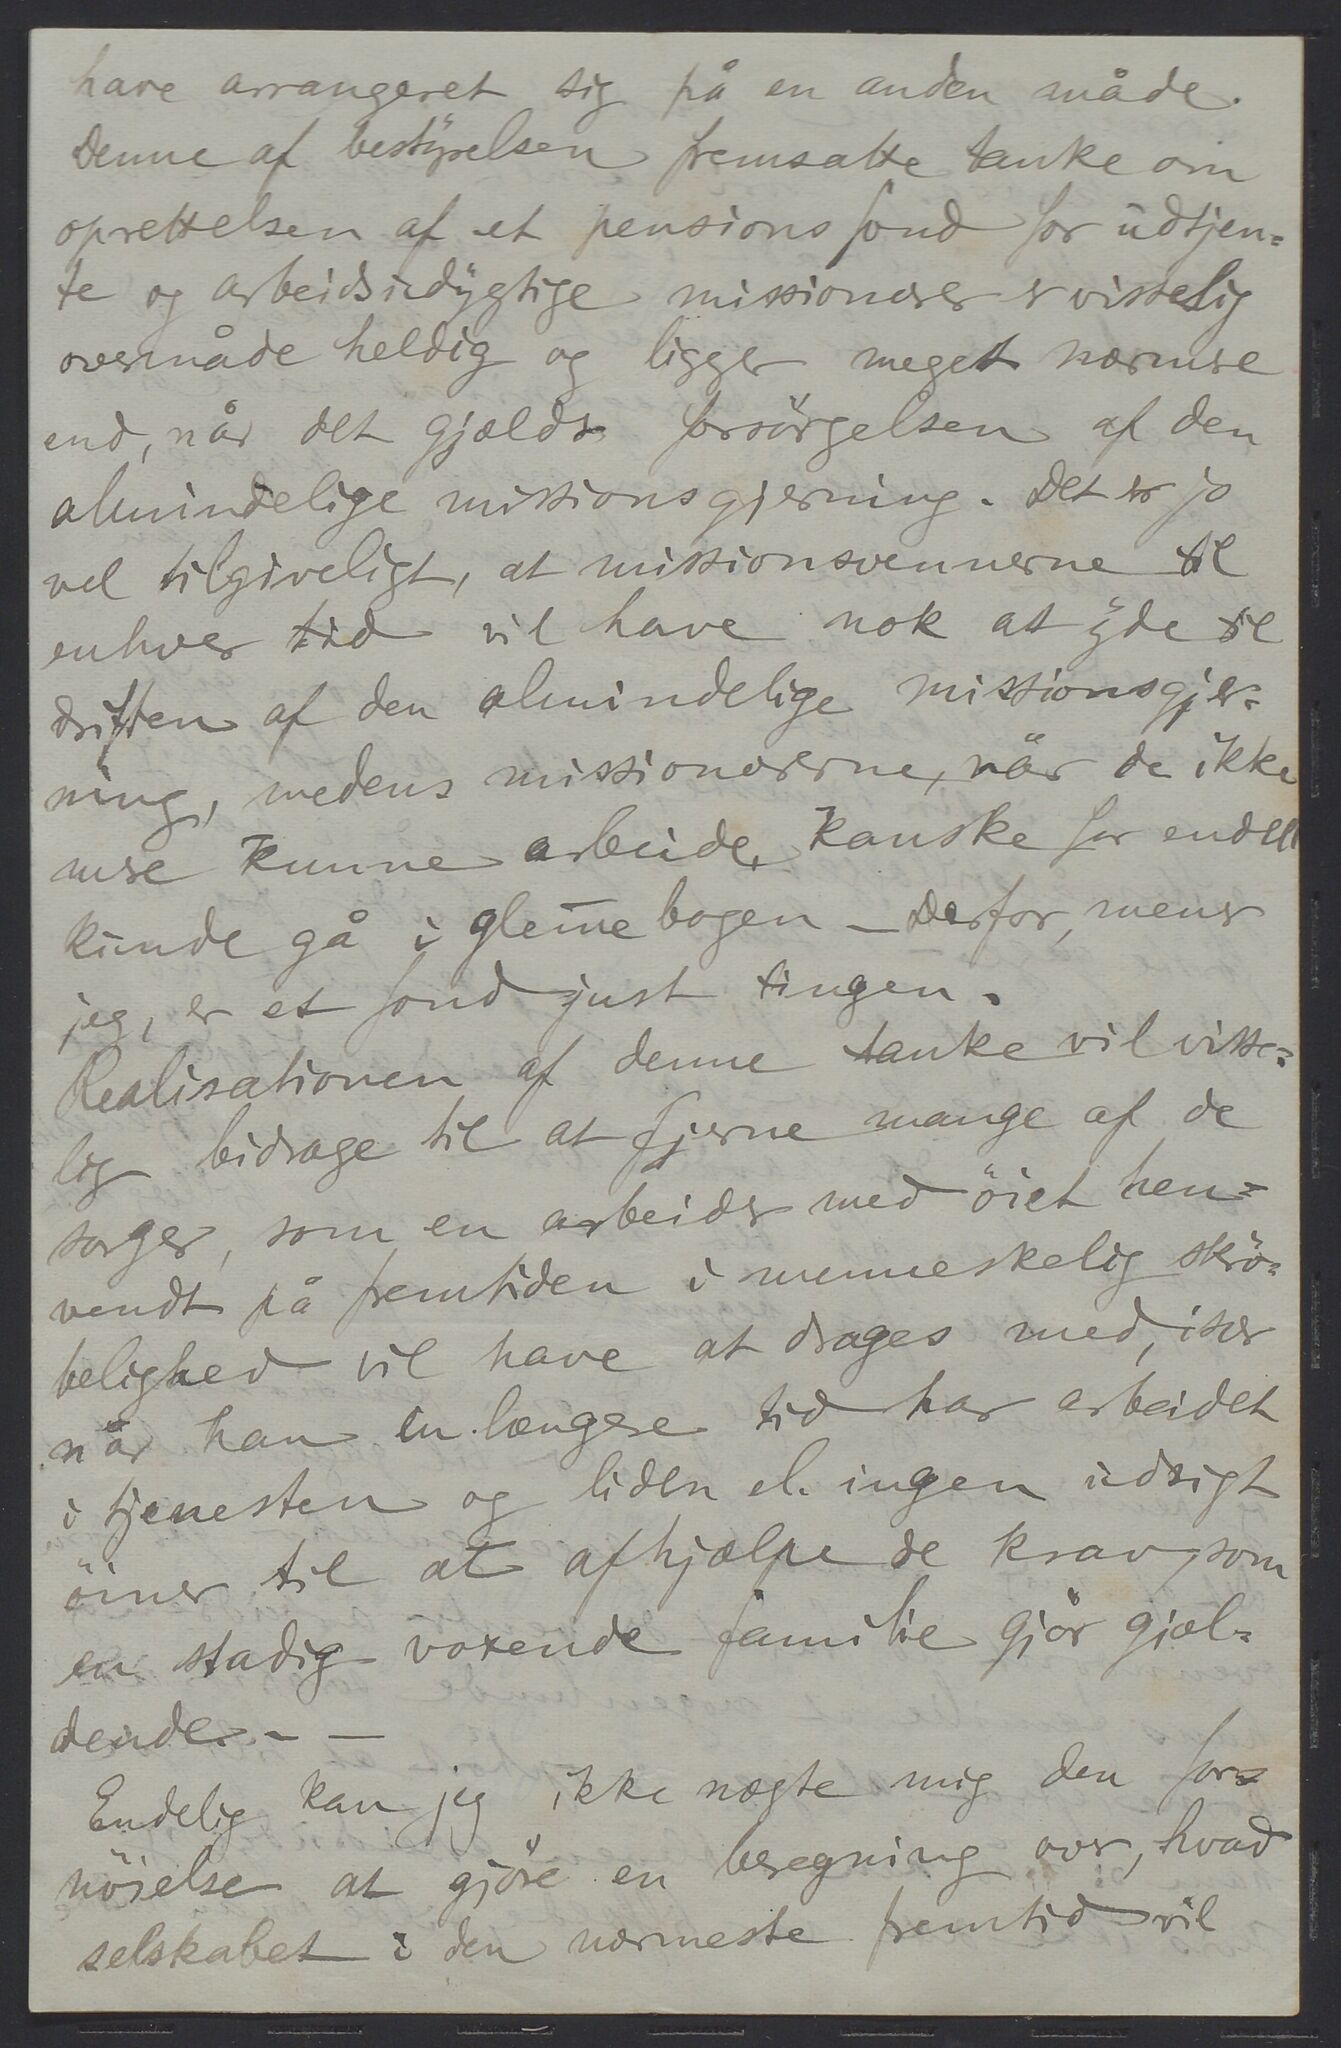 have arrangeret sig på en anden måde.
Denne af bestyrelsen fremsatte tanke om
oprettelsen af et pensionsfond for udtjen=
te og arbeidsudygtige missionærer er visselig
overmåde heldig og ligger meget nærmere
end, når det gjælder forsörgelsen af den
almindelige missionsgjerning. Det er jo
vel tilgiveligt, at missionsvennerne til
enhver tid vil have nok at yde til
driften af den almindelige missionsgjer=
ning, medens missionærerne, når de ikke
mere kunne arbeide, kanske for endel
kunde gå i glem̅ebogen – Derfor, mener
jeg, er et fond just tingen.
Realisationen af denne tanke vil visse=
lig bidrage til at fjerne mange af de
sorger, som en arbeider med öiet hen=
vendt på fremtiden i menneskelig skrö=
belighed vil have at drages med, især
når han en længere tid har arbeidet
i tjenesten og liden el. ingen udsigt
öiner til at afhjælpe de krav, som
en stadig voxende familie gjör gjæl=
dende. – –
Endelig kan jeg ikke nægte mig den for=
nöielse at gjöre en beregning over, hvad
selskabet i den nærmeste fremtid vil